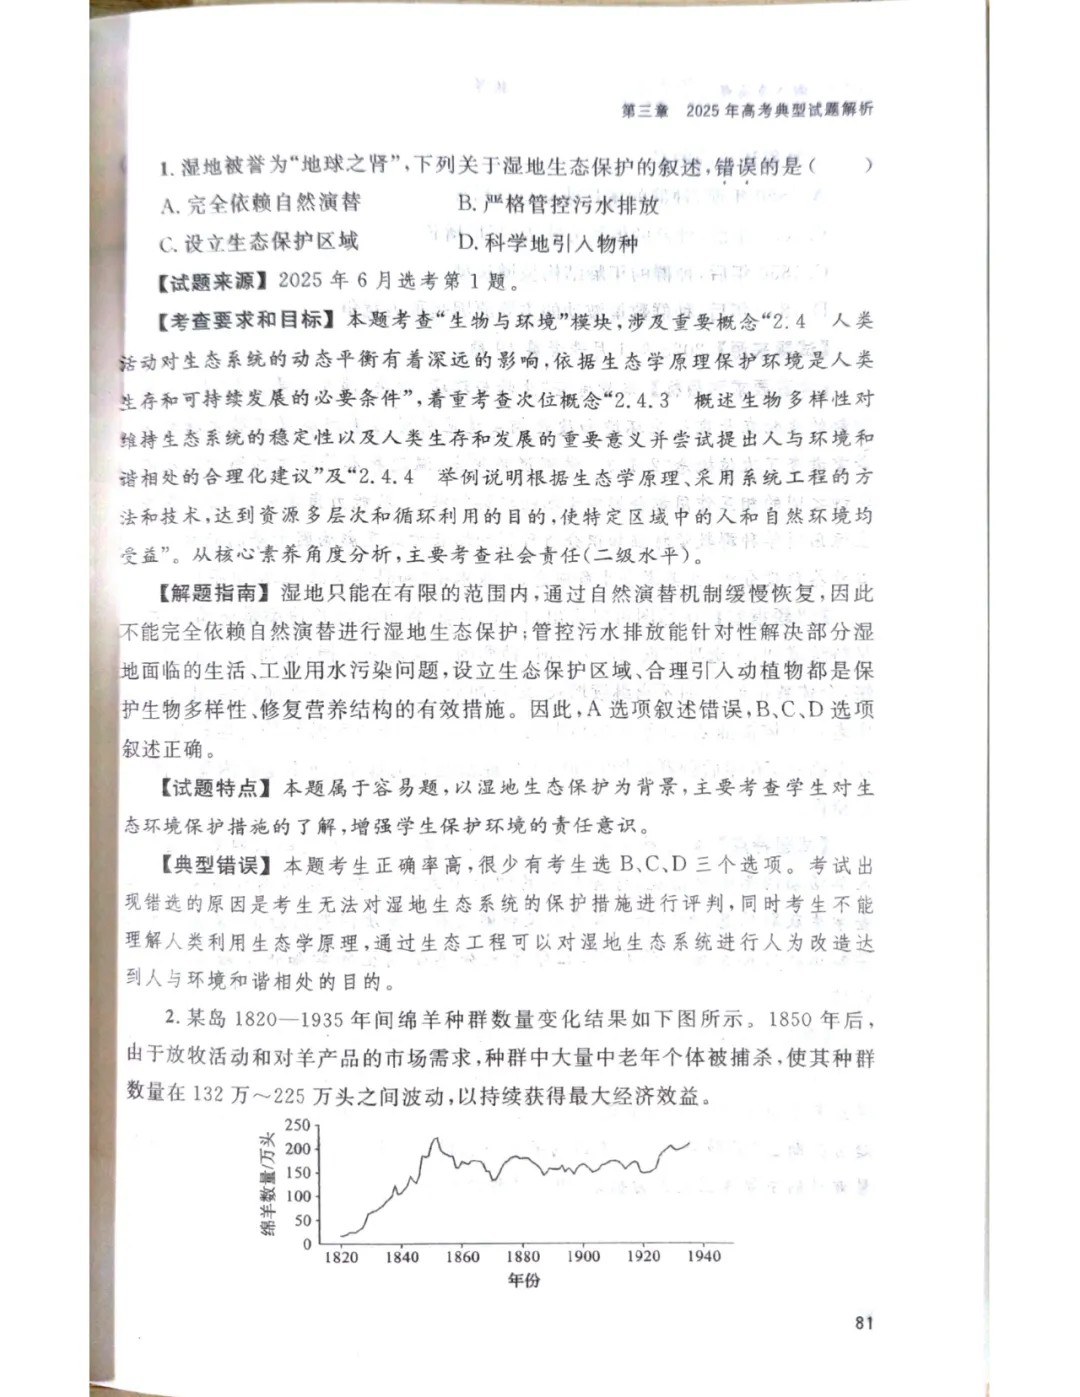 第三章 2025年高考典型试题解析
1. 湿地被誉为“地球之肾”,下列关于湿地生态保护的叙述,错误的是( )
A. 完全依赖自然演替 B. 严格管控污水排放
C. 设立生态保护区域 D. 科学地引入物种
【试题来源】2025年6月选考第1题。
【考查要求和目标】本题考查“生物与环境”模块,涉及重要概念“2.4 人类
活动对生态系统的动态平衡有着深远的影响,依据生态学原理保护环境是人类
生存和可持续发展的必要条件”,着重考查次位概念“2.4.3 概述生物多样性对
维持生态系统的稳定性以及人类生存和发展的重要意义并尝试提出人与环境和
谐相处的合理化建议”及“2.4.4 举例说明根据生态学原理、采用系统工程的方
法和技术,达到资源多层次和循环利用的目的,使特定区域中的人和自然环境均
受益”。从核心素养角度分析,主要考查社会责任(二级水平)。
【解题指南】湿地只能在有限的范围内,通过自然演替机制缓慢恢复,因此
不能完全依赖自然演替进行湿地生态保护;管控污水排放能针对性解决部分湿
地面临的生活、工业用水污染问题,设立生态保护区域、合理引入动植物都是保
护生物多样性、修复营养结构的有效措施。因此,A选项叙述错误,B、C、D选项
叙述正确。
【试题特点】本题属于容易题,以湿地生态保护为背景,主要考查学生对生
态环境保护措施的了解,增强学生保护环境的责任意识。
【典型错误】本题考生正确率高,很少有考生选B、C、D三个选项。考试出
现错选的原因是考生无法对湿地生态系统的保护措施进行评判,同时考生不能
理解人类利用生态学原理,通过生态工程可以对湿地生态系统进行人为改造达
到人与环境和谐相处的目的。
2. 某岛1820—1935年间绵羊种群数量变化结果如下图所示。1850年后,
由于放牧活动和对羊产品的市场需求,种群中大量中老年个体被捕杀,使其种群
数量在132万～225万头之间波动,以持续获得最大经济效益。
绵羊数量/万头
250
200
150
100
50
0
1820 1840 1860 1880 1900 1920 1940
年份
81